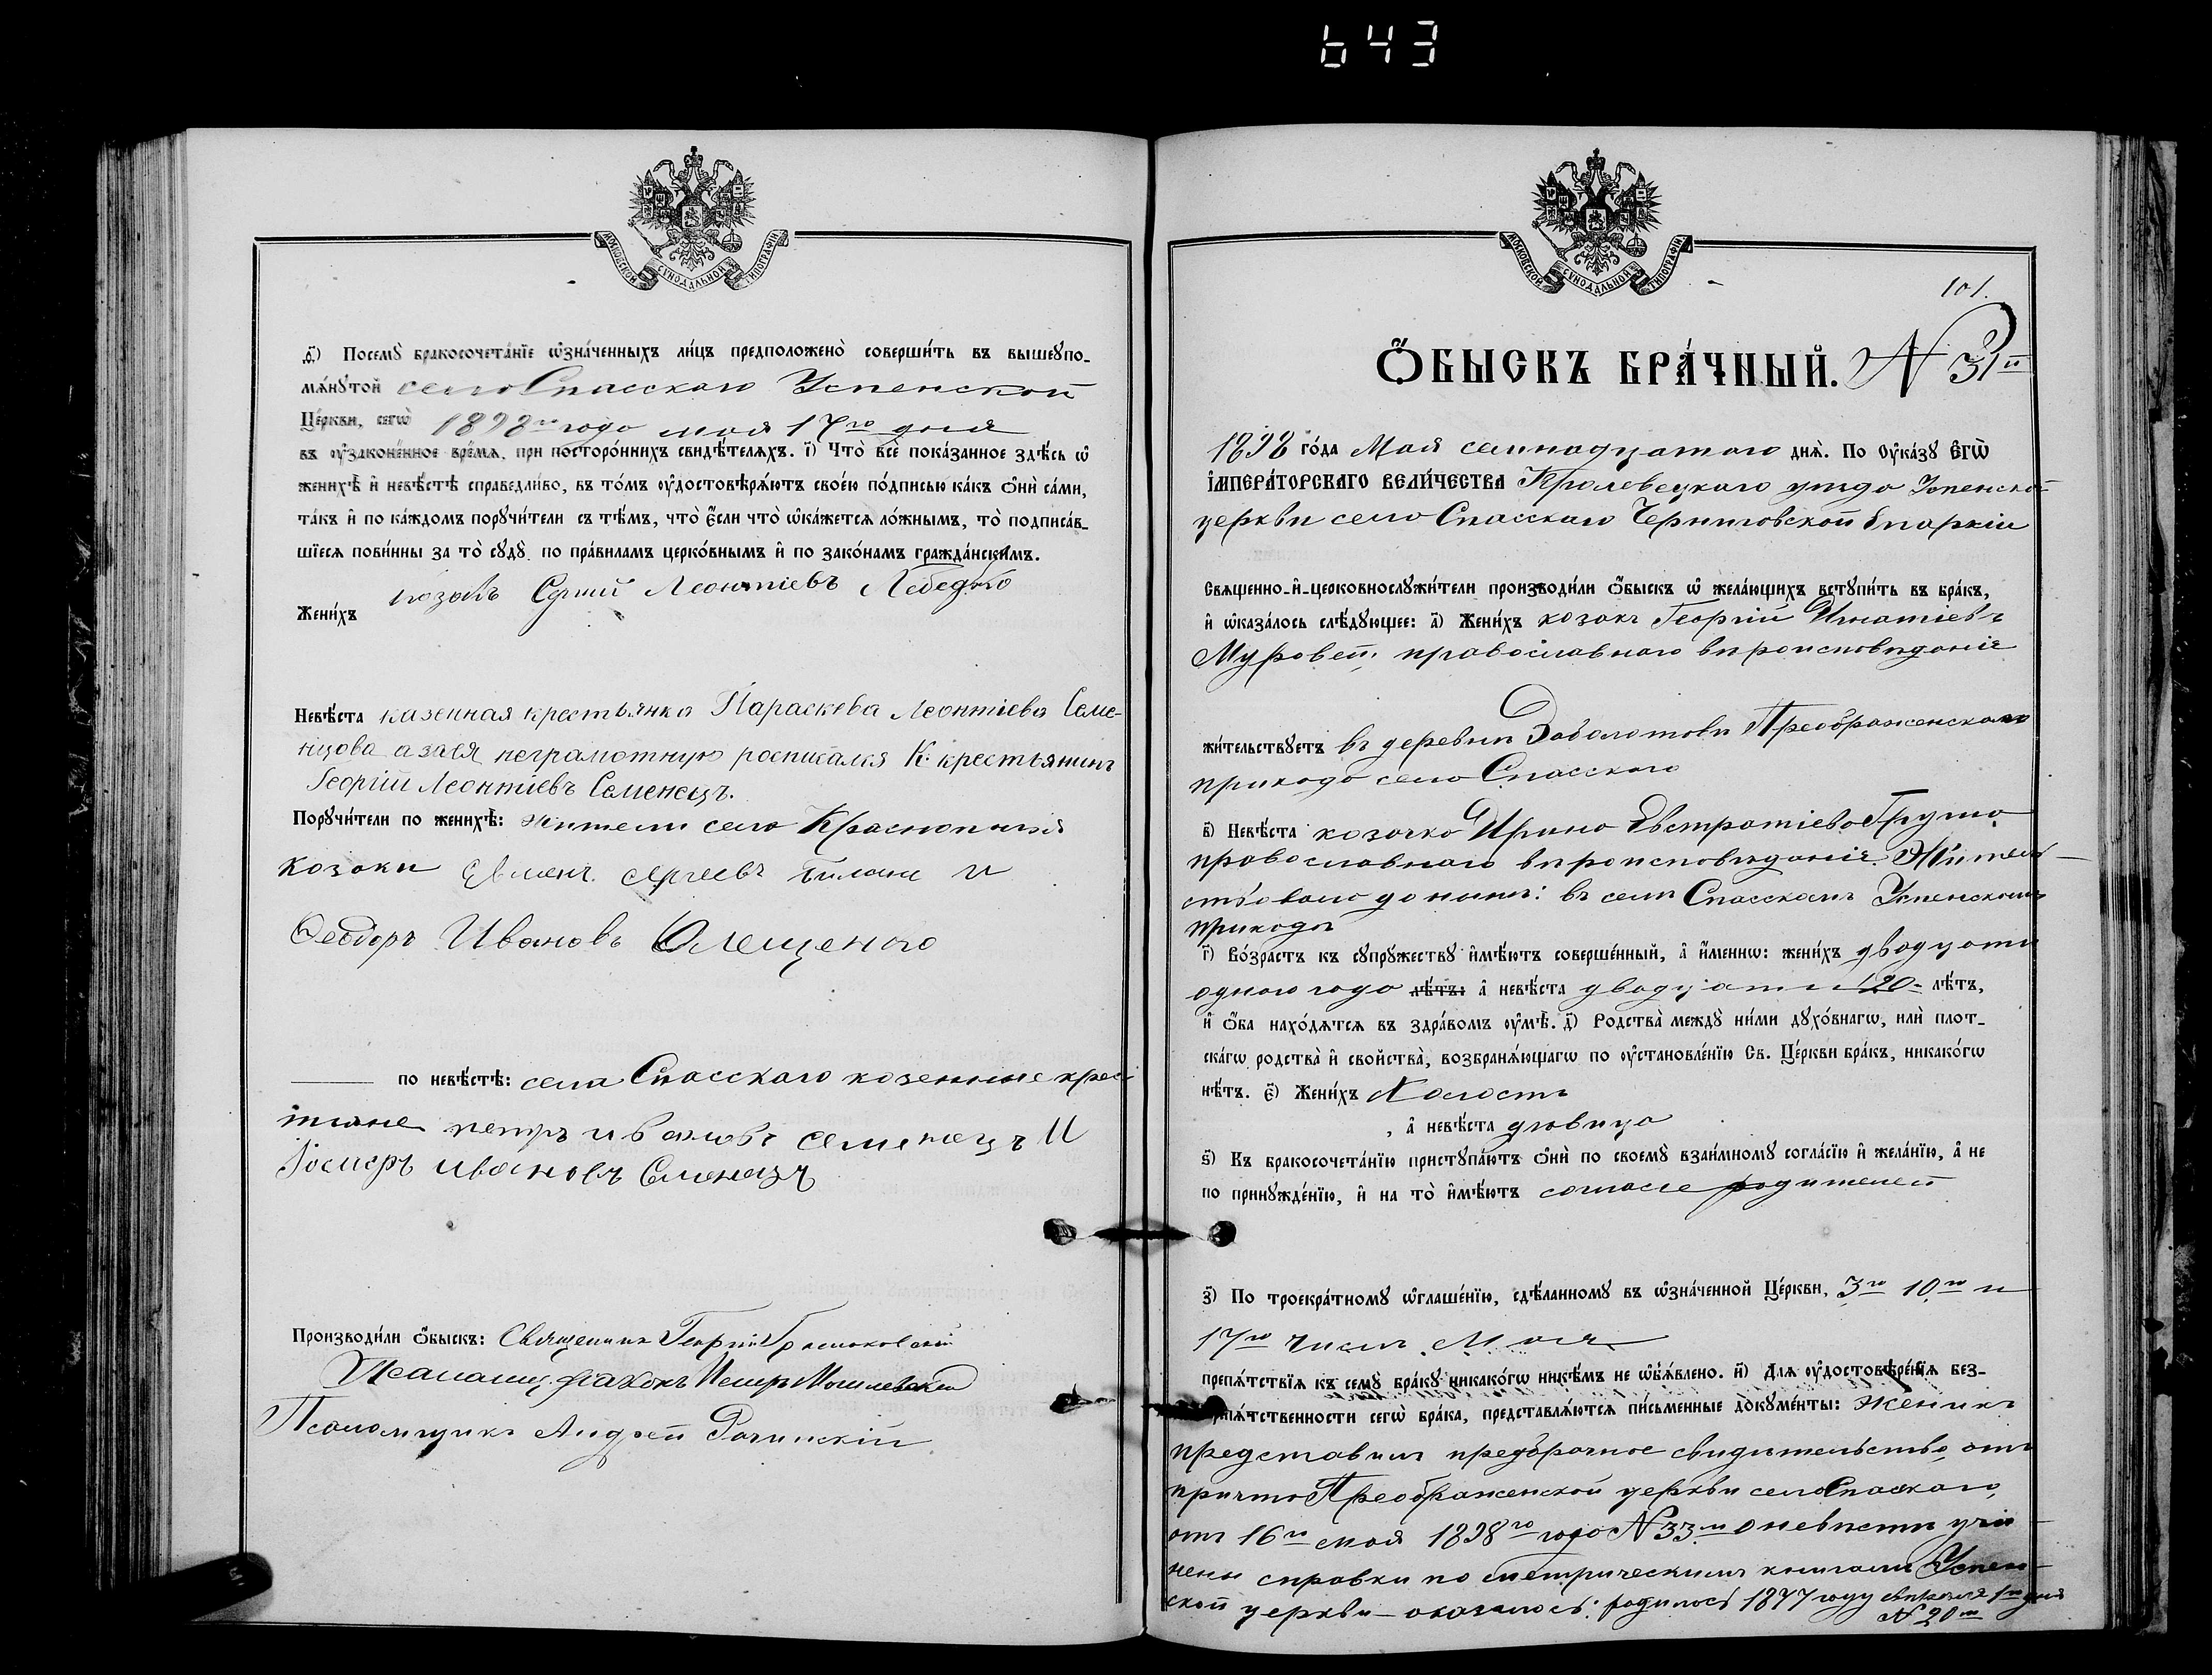 643
МОСКОВСКОЙ СѴНОДАЛЬНОЙ ТИПОГРАФІИ
д҃) Посемꙋ̀ бракосочета́нїе ѡ҆зна́ченныхъ ли́цъ предположено̀ соверши́ть въ вышеꙋпо-
мѧ́нꙋтой села Спасскаго Успенской
Це́ркви, сегѡ̀ 1898го года мая 17го дня
въ ᲂу҆зако́ненное вре́мѧ, при посторо́ннихъ свидѣ́телѧхъ. і҃) Что̀ всѐ пока́занное здѣ́сь ѡ҆
женихѣ̀ и҆ невѣ́стѣ справедли́во, въ то́мъ ᲂу҆достовѣрѧ́ютъ свое́ю по́дписью ка́къ ѻ҆нѝ са́ми,
та́къ и҆ по ка́ждомъ порꙋчи́тели съ тѣ́мъ, что̀ є҆́сли что̀ ѡ҆ка́жетсѧ ло́жнымъ, то̀ подписа́в-
шїесѧ пови́нны за то̀ сꙋдꙋ̀ по пра́виламъ церко́внымъ и҆ по зако́намъ гражда́нскимъ.
Жени́хъ козакъ Сергий Леонтіевъ Лебедко
Невѣ́ста казенная крестьянка Параскева Леонтіева Семе-
нцова а за ея неграмотную росписался К. крестьянинъ
Георгій Леонтіевъ Семенецъ.
Порꙋчи́тели по женихѣ̀: жители села
козаки Сергеевъ и
Ѳеодоръ Ивановъ Олещенко
по невѣ́стѣ: села Спасскаго козенные крес-
тяне петръ ивановъ семенецъ И
ивановъ Семенецъ
Производи́ли ѻ҆́быскъ: Священникъ Георгій
Псаломщ. діаконъ Петръ Могилевскій
Псаломщикъ Андрей Рачинскій
МОСКОВСКОЙ СѴНОДАЛЬНОЙ ТИПОГРАФІИ
101.
Ѻ҆́БЫСКЪ БРА́ЧНЫЙ. N 31й
1898 го́да Мая семнадцатаго днѧ̀. По Оу҆ка́зꙋ Є҆гѡ̀
І҆мпера́торскаго Вели́чества Кролевецкаго уезда Успенской
церкви села Спасскаго Черниговской Епархіи
Свѧщенно-и҆-церковнослꙋжи́тели производи́ли ѻ҆́быскъ ѡ҆ жела́ющихъ встꙋпи́ть въ бра́къ,
и҆ ѡ҆каза́лось слѣ́дꙋющее: а҃) Жени́хъ козакъ Георгій Игнатіевъ
Муровей, православнаго вѣроисповѣданія
жи́тельствꙋетъ въ деревнѣ Заболотовѣ Преображенскаго
прихода села Спасскаго
в҃) Невѣ́ста козачка Ирина Евстратіева Груша
православнаго вѣроисповѣданія. Житель-
ствовала до нынѣ: въ селѣ Спасскомъ Успенскомъ
приходѣ
г҃) Во́зрастъ къ сꙋпрꙋ́жествꙋ и҆мѣ́ютъ соверше́нный, а҆ и҆́меннѡ: жени́хъ двадцати
одного года лѣ́тъ: а҆ невѣ́ста двадцати 20 лѣ́тъ,
и҆ ѻ҆́ба нахо́дѧтсѧ въ здра́вомъ ᲂу҆мѣ̀. д҃) Родства̀ междꙋ̀ ни́ми дꙋхо́внагѡ, и҆лѝ плот-
ска́гѡ родства̀ и҆ сво́йства, возбранѧ́ющагѡ по ᲂу҆становле́нїю Св. Це́ркви бра́къ, никако́гѡ
нѣ́тъ. є҃) Жени́хъ Холостъ
, а҆ невѣ́ста дѣвица
ѕ҃) Къ бракосочета́нїю пристꙋпа́ютъ ѻ҆нѝ по своемꙋ̀ взаи́мномꙋ согла́сїю и҆ жела́нїю, а҆ не
по принꙋжде́нїю, и҆ на то̀ и҆мѣ́ютъ согласіе родителей
з҃) По троекра́тномꙋ ѡ҆глаше́нїю, сдѣ́ланномꙋ въ ѡ҆зна́ченной Це́ркви, 3го 10го и
17го числъ Мая
препѧ́тствїѧ къ семꙋ̀ бра́кꙋ никако́гѡ никѣ́мъ не ѡ҆б̾ѧ́влено. и҃) Длѧ ᲂу҆достовѣре́нїѧ без-
препѧ́тственности сегѡ̀ бра́ка, представлѧ́ютсѧ пи́сьменные докꙋме́нты: Женихъ
представилъ предбрачное свидѣтельство отъ
причта Преображенской церкви села Спасскаго,
отъ 16го мая 1898го года N 33м о невѣсте учи-
нены справки по метрическимъ книгамъ Успен-
ской церкви – оказалось: родилась 1877 году дня
N 20м